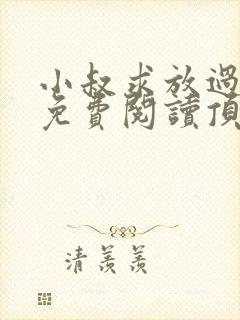 小叔求放過
免費閱讀頂
清羨羨